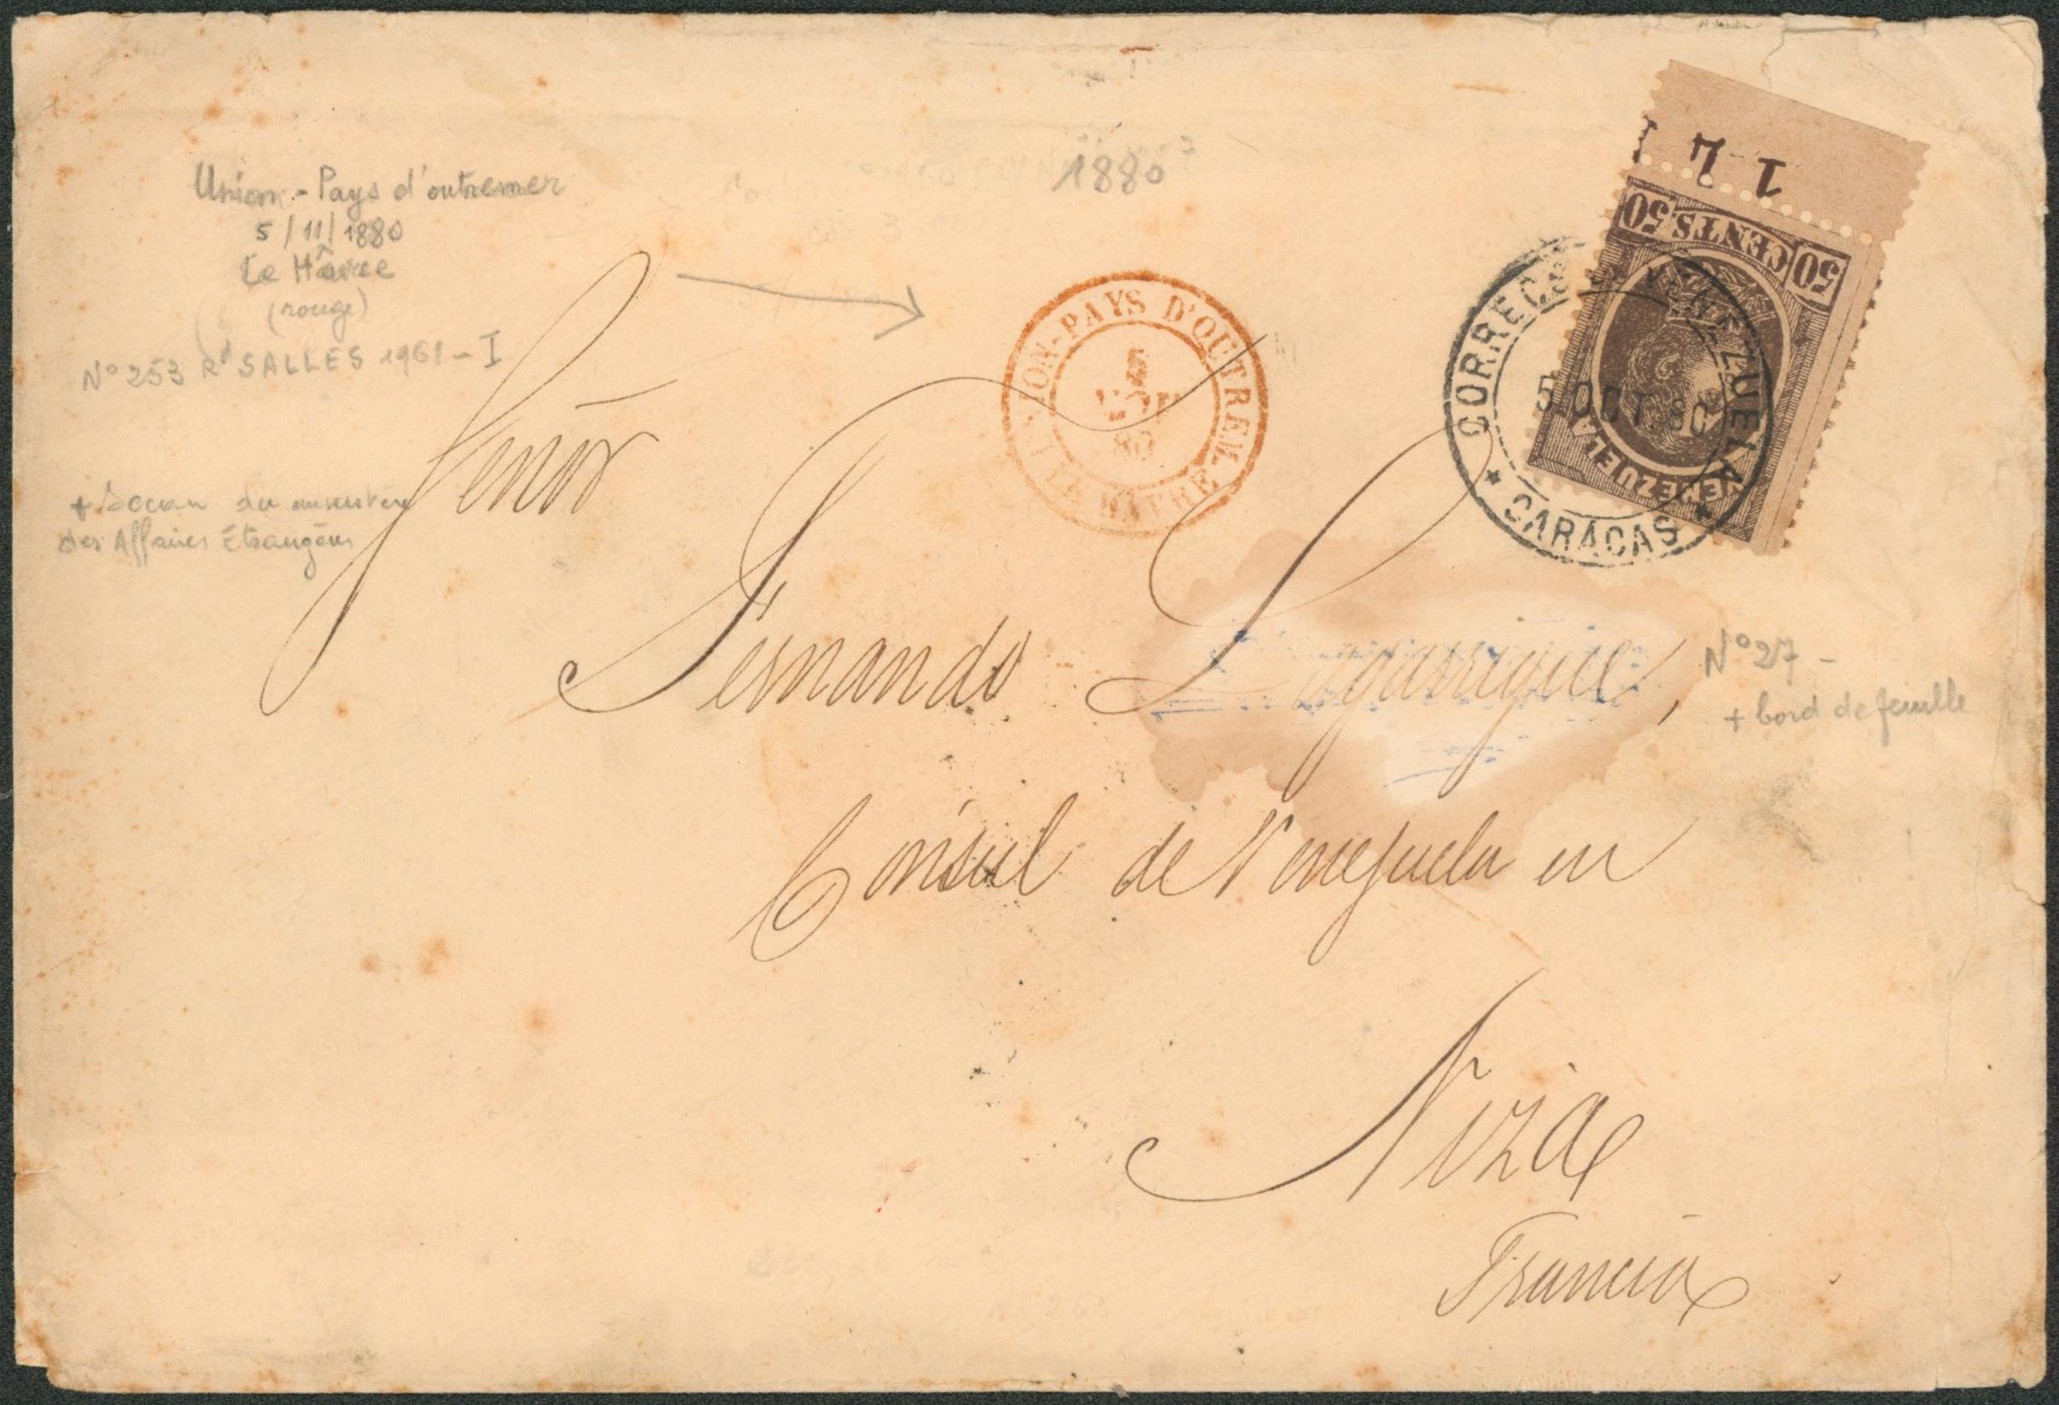 1880
Union-Pays d'outremer
5/11/1880
Le Hâvre
(rouge)
N° 253 Rd SALLES 1961-I
+ Sceau du ministère
des Affaires Étrangères
UNION-PAYS D'OUTREM.
5
NOV
80
LE HAVRE
50 CENTS 50
VENEZUELA
CORREOS DE VENEZUELA
5 OCT. 80
CARACAS
Señor
Fernando Lagarrigue,
N° 27 -
+ bord de feuille
Cónsul de Venezuela en
Niza
Francia